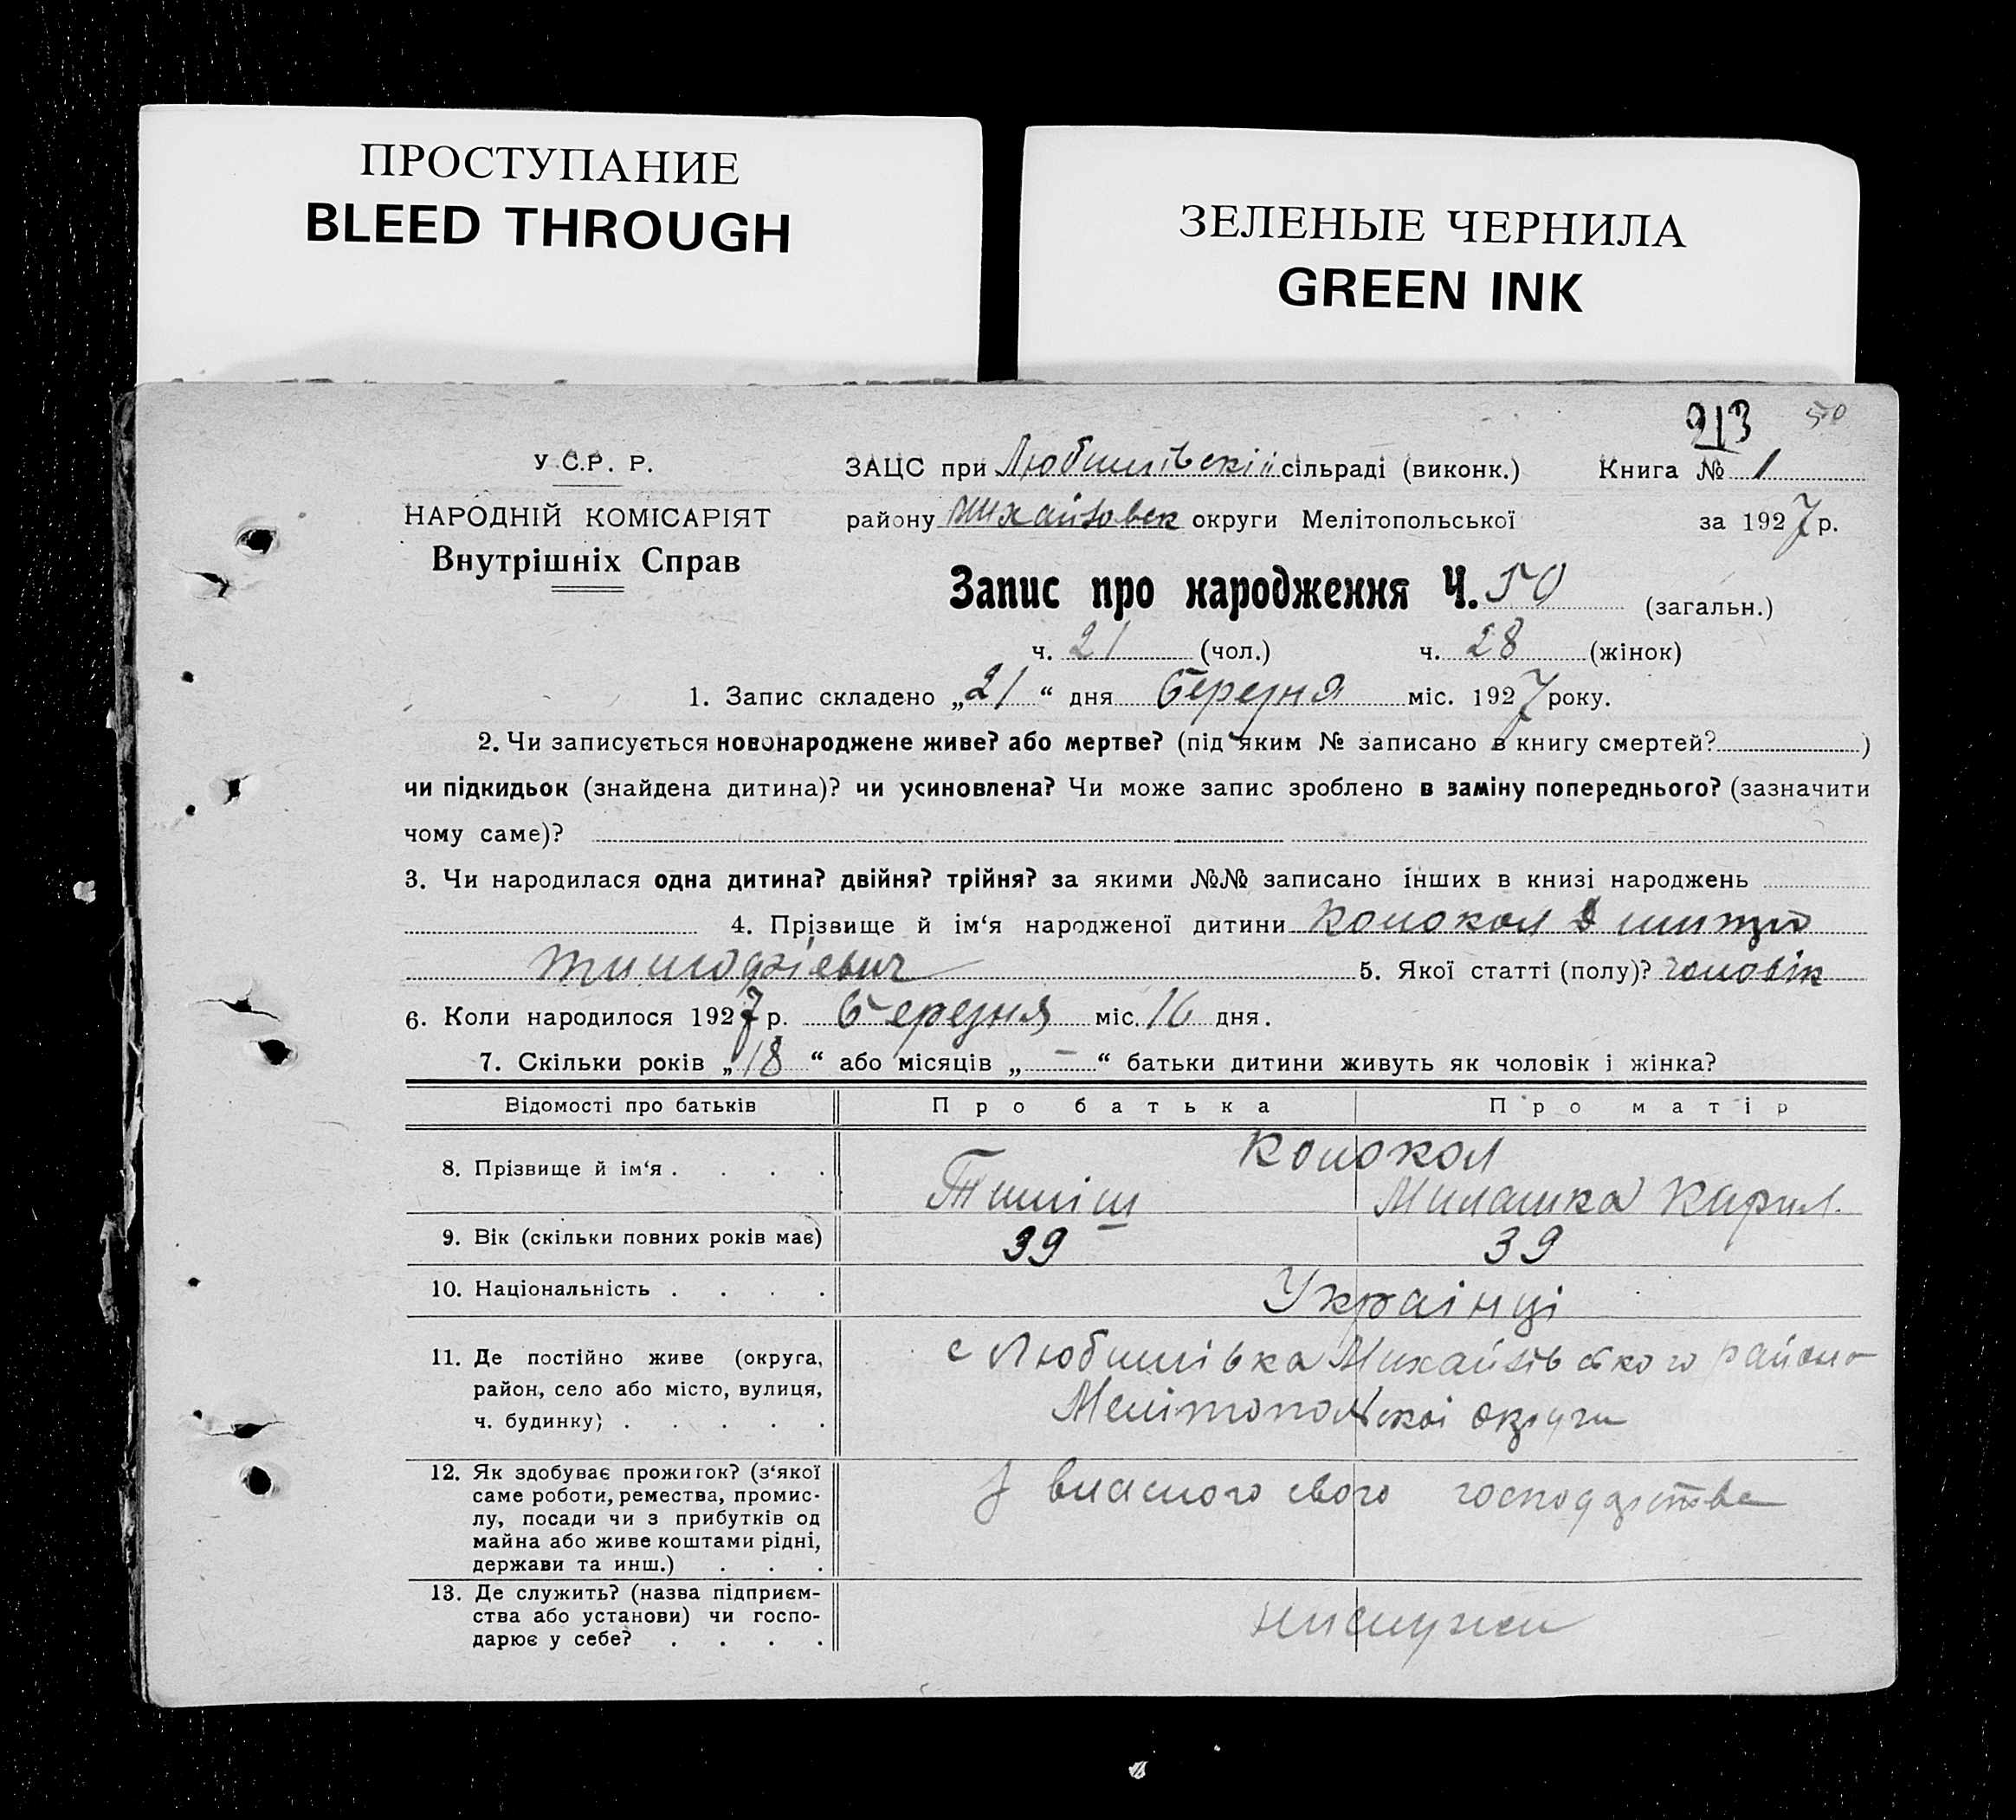 ПРОСТУПАНИЕ
BLEED THROUGH
ЗЕЛЕНЫЕ ЧЕРНИЛА
GREEN INK
213 50
У С.Р. Р.
НАРОДНІЙ КОМІСАРІЯТ
Внутрішніх Справ
ЗАЦС при Любимівській сільраді (виконк.) Книга № 1
району Михайловськ округи Мелітопольської за 1927 р.
Запис про народження Ч. 50 (загальн.)
ч. 21 (чол.) ч. 28 (жінок)
1. Запис складено „21“ дня березня міс. 1927 року.
2. Чи записується новонароджене живе? або мертве? (під яким № записано в книгу смертей? )
чи підкидьок (знайдена дитина)? чи усиновлена? Чи може запис зроблено в заміну попереднього? (зазначити
чому саме)?
3. Чи народилася одна дитина? двійня? трійня? за якими №№ записано інших в книзі народжень
4. Прізвище й ім‘я народженої дитини Колокол
5. Якої статті (полу)? чоловік
6. Коли народилося 1927 р. березня міс. 16 дня.
7. Скільки років „18“ або місяців „—“ батьки дитини живуть як чоловік і жінка?
Відомості про батьків Про батька Про матір
8. Прізвище й ім‘я . . . . Колокол
Милашка Кирил.
9. Вік (скільки повних років має) 39 39
10. Національність . . . . Українці
11. Де постійно живе (округа,
район, село або місто, вулиця,
ч. будинку) . . . . .
с Любимівка Михайлівського району
Мелітопольскої округи
12. Як здобуває прожиток? (з‘якої
саме роботи, ремества, промис-
лу, посади чи з прибутків од
майна або живе коштами рідні,
держави та инш.) . . .
з власного свого господарства
13. Де служить? (назва підприєм-
ства або установи) чи госпо-
дарює у себе? . . . .